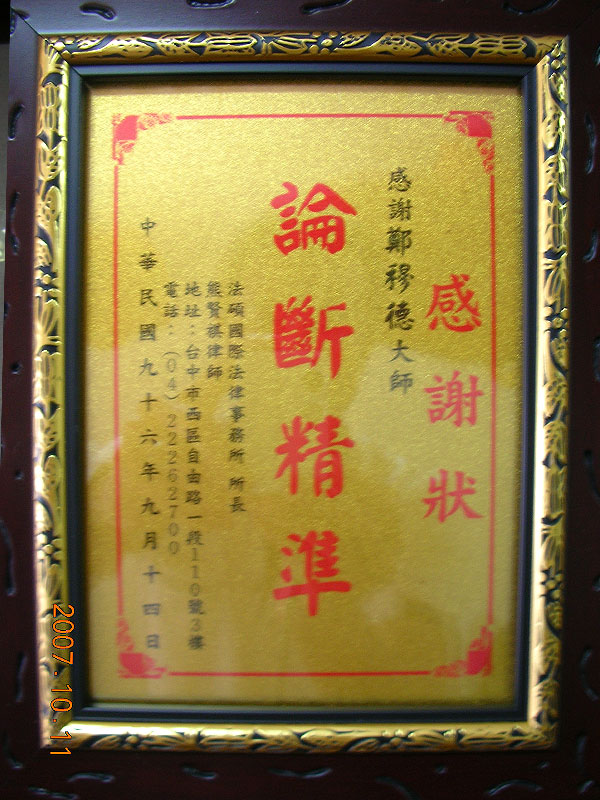 感謝狀
感謝鄭穆德大師
論斷精準
法碩國際法律事務所 所長
熊賢祺律師
地址：台中市西區自由路一段110號3樓
電話：(04)22262700
中華民國九十六年九月十四日
2007.10.11